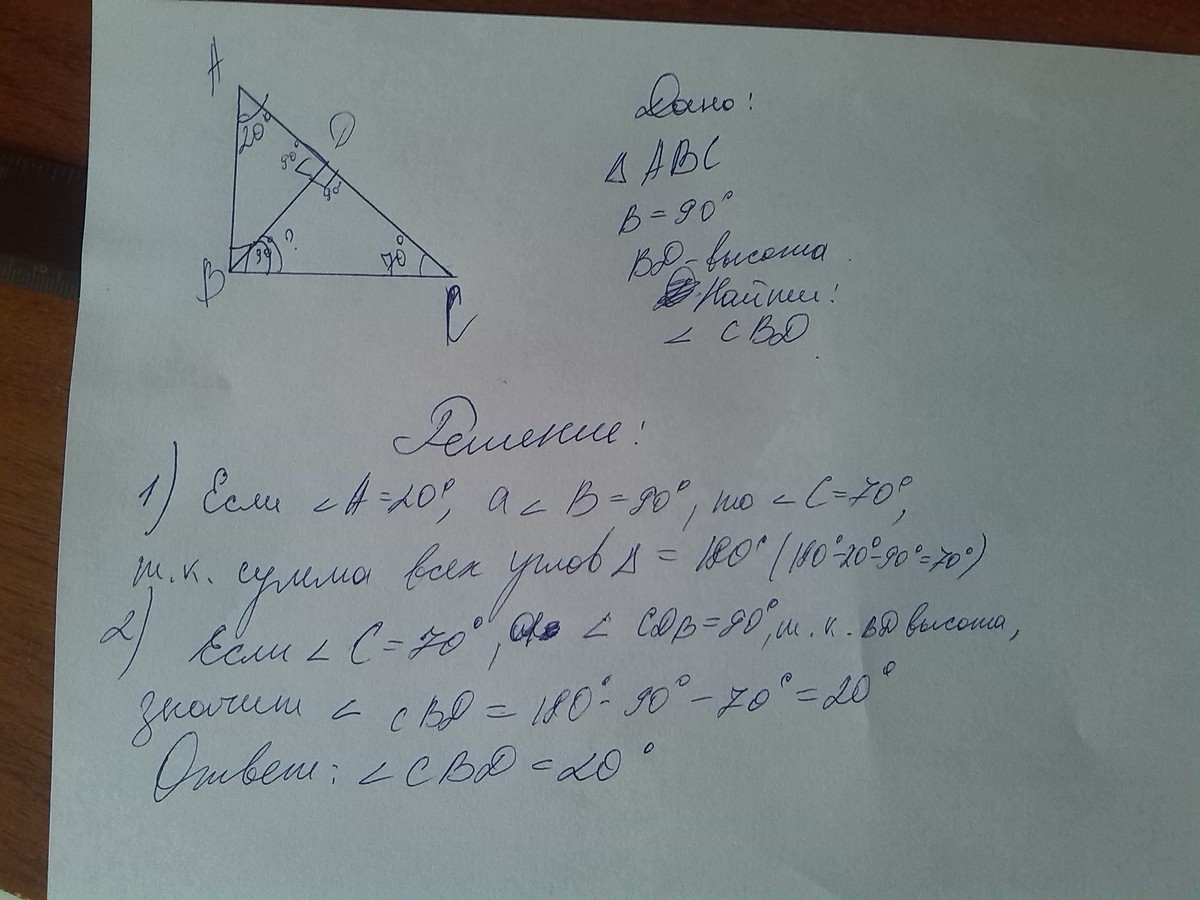 A
20°
D
90°
90°
B
90°
?
70°
C
Дано:
Δ ABC
B = 90°
BD - высота
Найти:
∠ CBD
Решение:
1) Если ∠A=20°, а ∠ B=90°, то ∠C=70°,
т.к. сумма всех углов Δ = 180° (180°-20°-90°=70°)
2) Если ∠ C=70°, а ∠ CDB=90°, т.к. BD высота,
значит ∠ CBD = 180°- 90° - 70° = 20°
Ответ: ∠ CBD = 20°